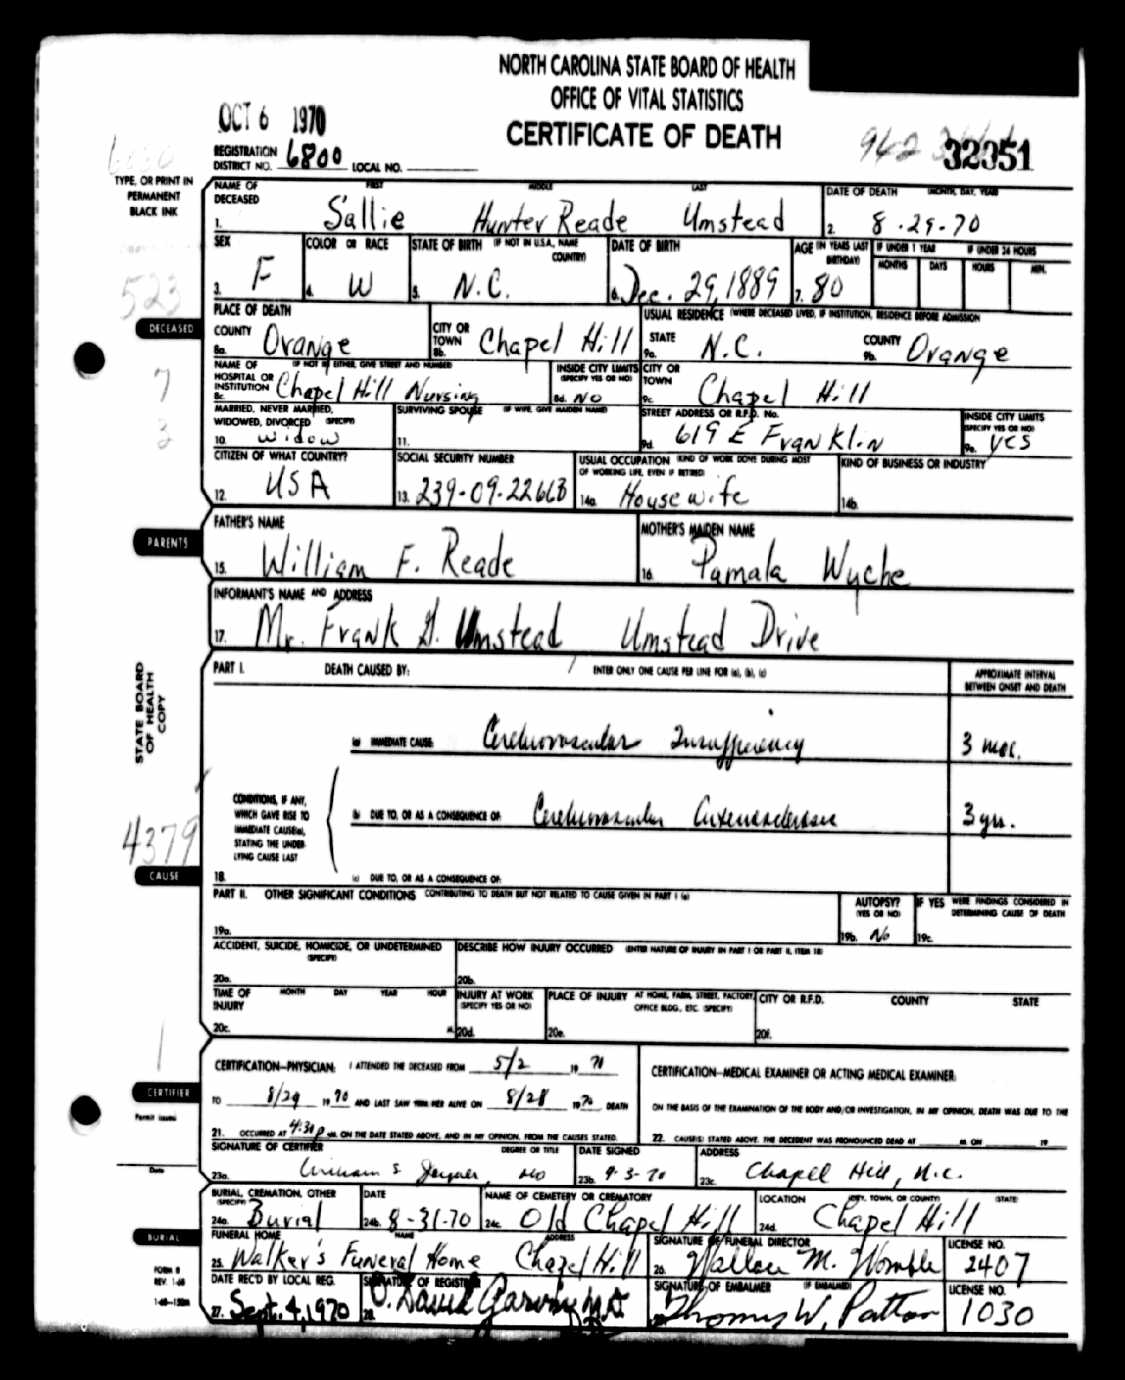 NORTH CAROLINA STATE BOARD OF HEALTH
OFFICE OF VITAL STATISTICS
CERTIFICATE OF DEATH
OCT 6 1970
REGISTRATION DISTRICT NO. 6800 LOCAL NO.
942 32351
TYPE, OR PRINT IN PERMANENT BLACK INK
NAME OF DECEASED FIRST MIDDLE LAST DATE OF DEATH (MONTH, DAY, YEAR)
1. Sallie Hunter Reade Umstead 2. 8-29-70
SEX COLOR OR RACE STATE OF BIRTH (IF NOT IN U.S.A., NAME COUNTRY) DATE OF BIRTH AGE (IN YEARS LAST BIRTHDAY) IF UNDER 1 YEAR IF UNDER 24 HOURS
MONTHS DAYS HOURS MIN.
3. F 4. W 5. N.C. 6. Dec. 29, 1889 7. 80
523
DECEASED
PLACE OF DEATH USUAL RESIDENCE (WHERE DECEASED LIVED, IF INSTITUTION, RESIDENCE BEFORE ADMISSION)
COUNTY 8a. Orange CITY OR TOWN 8b. Chapel Hill STATE 9a. N.C. COUNTY 9b. Orange
NAME OF HOSPITAL OR INSTITUTION (IF NOT IN EITHER, GIVE STREET AND NUMBER) 8c. Chapel Hill Nursing INSIDE CITY LIMITS (SPECIFY YES OR NO) 8d. NO CITY OR TOWN 9c. Chapel Hill
7
3
MARRIED, NEVER MARRIED, WIDOWED, DIVORCED (SPECIFY) 10. Widow SURVIVING SPOUSE (IF WIFE, GIVE MAIDEN NAME) 11. STREET ADDRESS OR R.F.D. No. 9d. 619 E Franklin INSIDE CITY LIMITS (SPECIFY YES OR NO) 9e. yes
CITIZEN OF WHAT COUNTRY? 12. USA SOCIAL SECURITY NUMBER 13. 239-09-2266B USUAL OCCUPATION (KIND OF WORK DONE DURING MOST OF WORKING LIFE, EVEN IF RETIRED) 14a. Housewife KIND OF BUSINESS OR INDUSTRY 14b.
PARENTS
FATHER'S NAME 15. William F. Reade MOTHER'S MAIDEN NAME 16. Pamala Wyche
INFORMANT'S NAME AND ADDRESS
17. Mr. Frank G. Umstead Umstead Drive
STATE BOARD OF HEALTH COPY
PART I. DEATH CAUSED BY: ENTER ONLY ONE CAUSE PER LINE FOR (a), (b), (c) APPROXIMATE INTERVAL BETWEEN ONSET AND DEATH
(a) IMMEDIATE CAUSE: Cerebrovascular Insufficiency 3 mos.
CONDITIONS, IF ANY, WHICH GAVE RISE TO IMMEDIATE CAUSE(a), STATING THE UNDERLYING CAUSE LAST
(b) DUE TO, OR AS A CONSEQUENCE OF: Cerebrovascular Arteriosclerosis 3 yrs.
4379
CAUSE
18. (c) DUE TO, OR AS A CONSEQUENCE OF:
PART II. OTHER SIGNIFICANT CONDITIONS CONTRIBUTING TO DEATH BUT NOT RELATED TO CAUSE GIVEN IN PART I (a) AUTOPSY? (YES OR NO) IF YES WERE FINDINGS CONSIDERED IN DETERMINING CAUSE OF DEATH
19a. 19b. No 19c.
ACCIDENT, SUICIDE, HOMICIDE, OR UNDETERMINED (SPECIFY) DESCRIBE HOW INJURY OCCURRED (ENTER NATURE OF INJURY IN PART I OR PART II, ITEM 18)
20a. 20b.
TIME OF INJURY MONTH DAY YEAR HOUR INJURY AT WORK (SPECIFY YES OR NO) PLACE OF INJURY AT HOME, FARM, STREET, FACTORY, OFFICE BLDG., ETC. (SPECIFY) CITY OR R.F.D. COUNTY STATE
20c. M. 20d. 20e. 20f.
CERTIFIER
Permit issued
Date
CERTIFICATION—PHYSICIAN: I ATTENDED THE DECEASED FROM 5/2 19 70
TO 8/29 1970 AND LAST SAW HIM HER ALIVE ON 8/28 1970 DEATH
21. OCCURRED AT 4:30 p M. ON THE DATE STATED ABOVE, AND IN MY OPINION, FROM THE CAUSES STATED.
CERTIFICATION—MEDICAL EXAMINER OR ACTING MEDICAL EXAMINER:
ON THE BASIS OF THE EXAMINATION OF THE BODY AND/OR INVESTIGATION, IN MY OPINION, DEATH WAS DUE TO THE
22. CAUSE(S) STATED ABOVE. THE DECEDENT WAS PRONOUNCED DEAD AT M. ON 19
SIGNATURE OF CERTIFIER DEGREE OR TITLE DATE SIGNED ADDRESS
23a. William S. MD 23b. 9-3-70 23c. Chapel Hill, N.C.
BURIAL
BURIAL, CREMATION, OTHER (SPECIFY) DATE NAME OF CEMETERY OR CREMATORY LOCATION (CITY, TOWN, OR COUNTY) (STATE)
24a. Burial 24b. 8-31-70 24c. Old Chapel Hill 24d. Chapel Hill
FUNERAL HOME NAME ADDRESS SIGNATURE OF FUNERAL DIRECTOR LICENSE NO.
25. Walker's Funeral Home Chapel Hill 26. Wallace M. Womble 2407
FORM 8
REV. 1-68
DATE REC'D BY LOCAL REG. SIGNATURE OF REGISTRAR SIGNATURE OF EMBALMER (IF EMBALMED) LICENSE NO.
27. Sept. 4, 1970 28. O. David Garvin MD Thomas W. Patton 1030